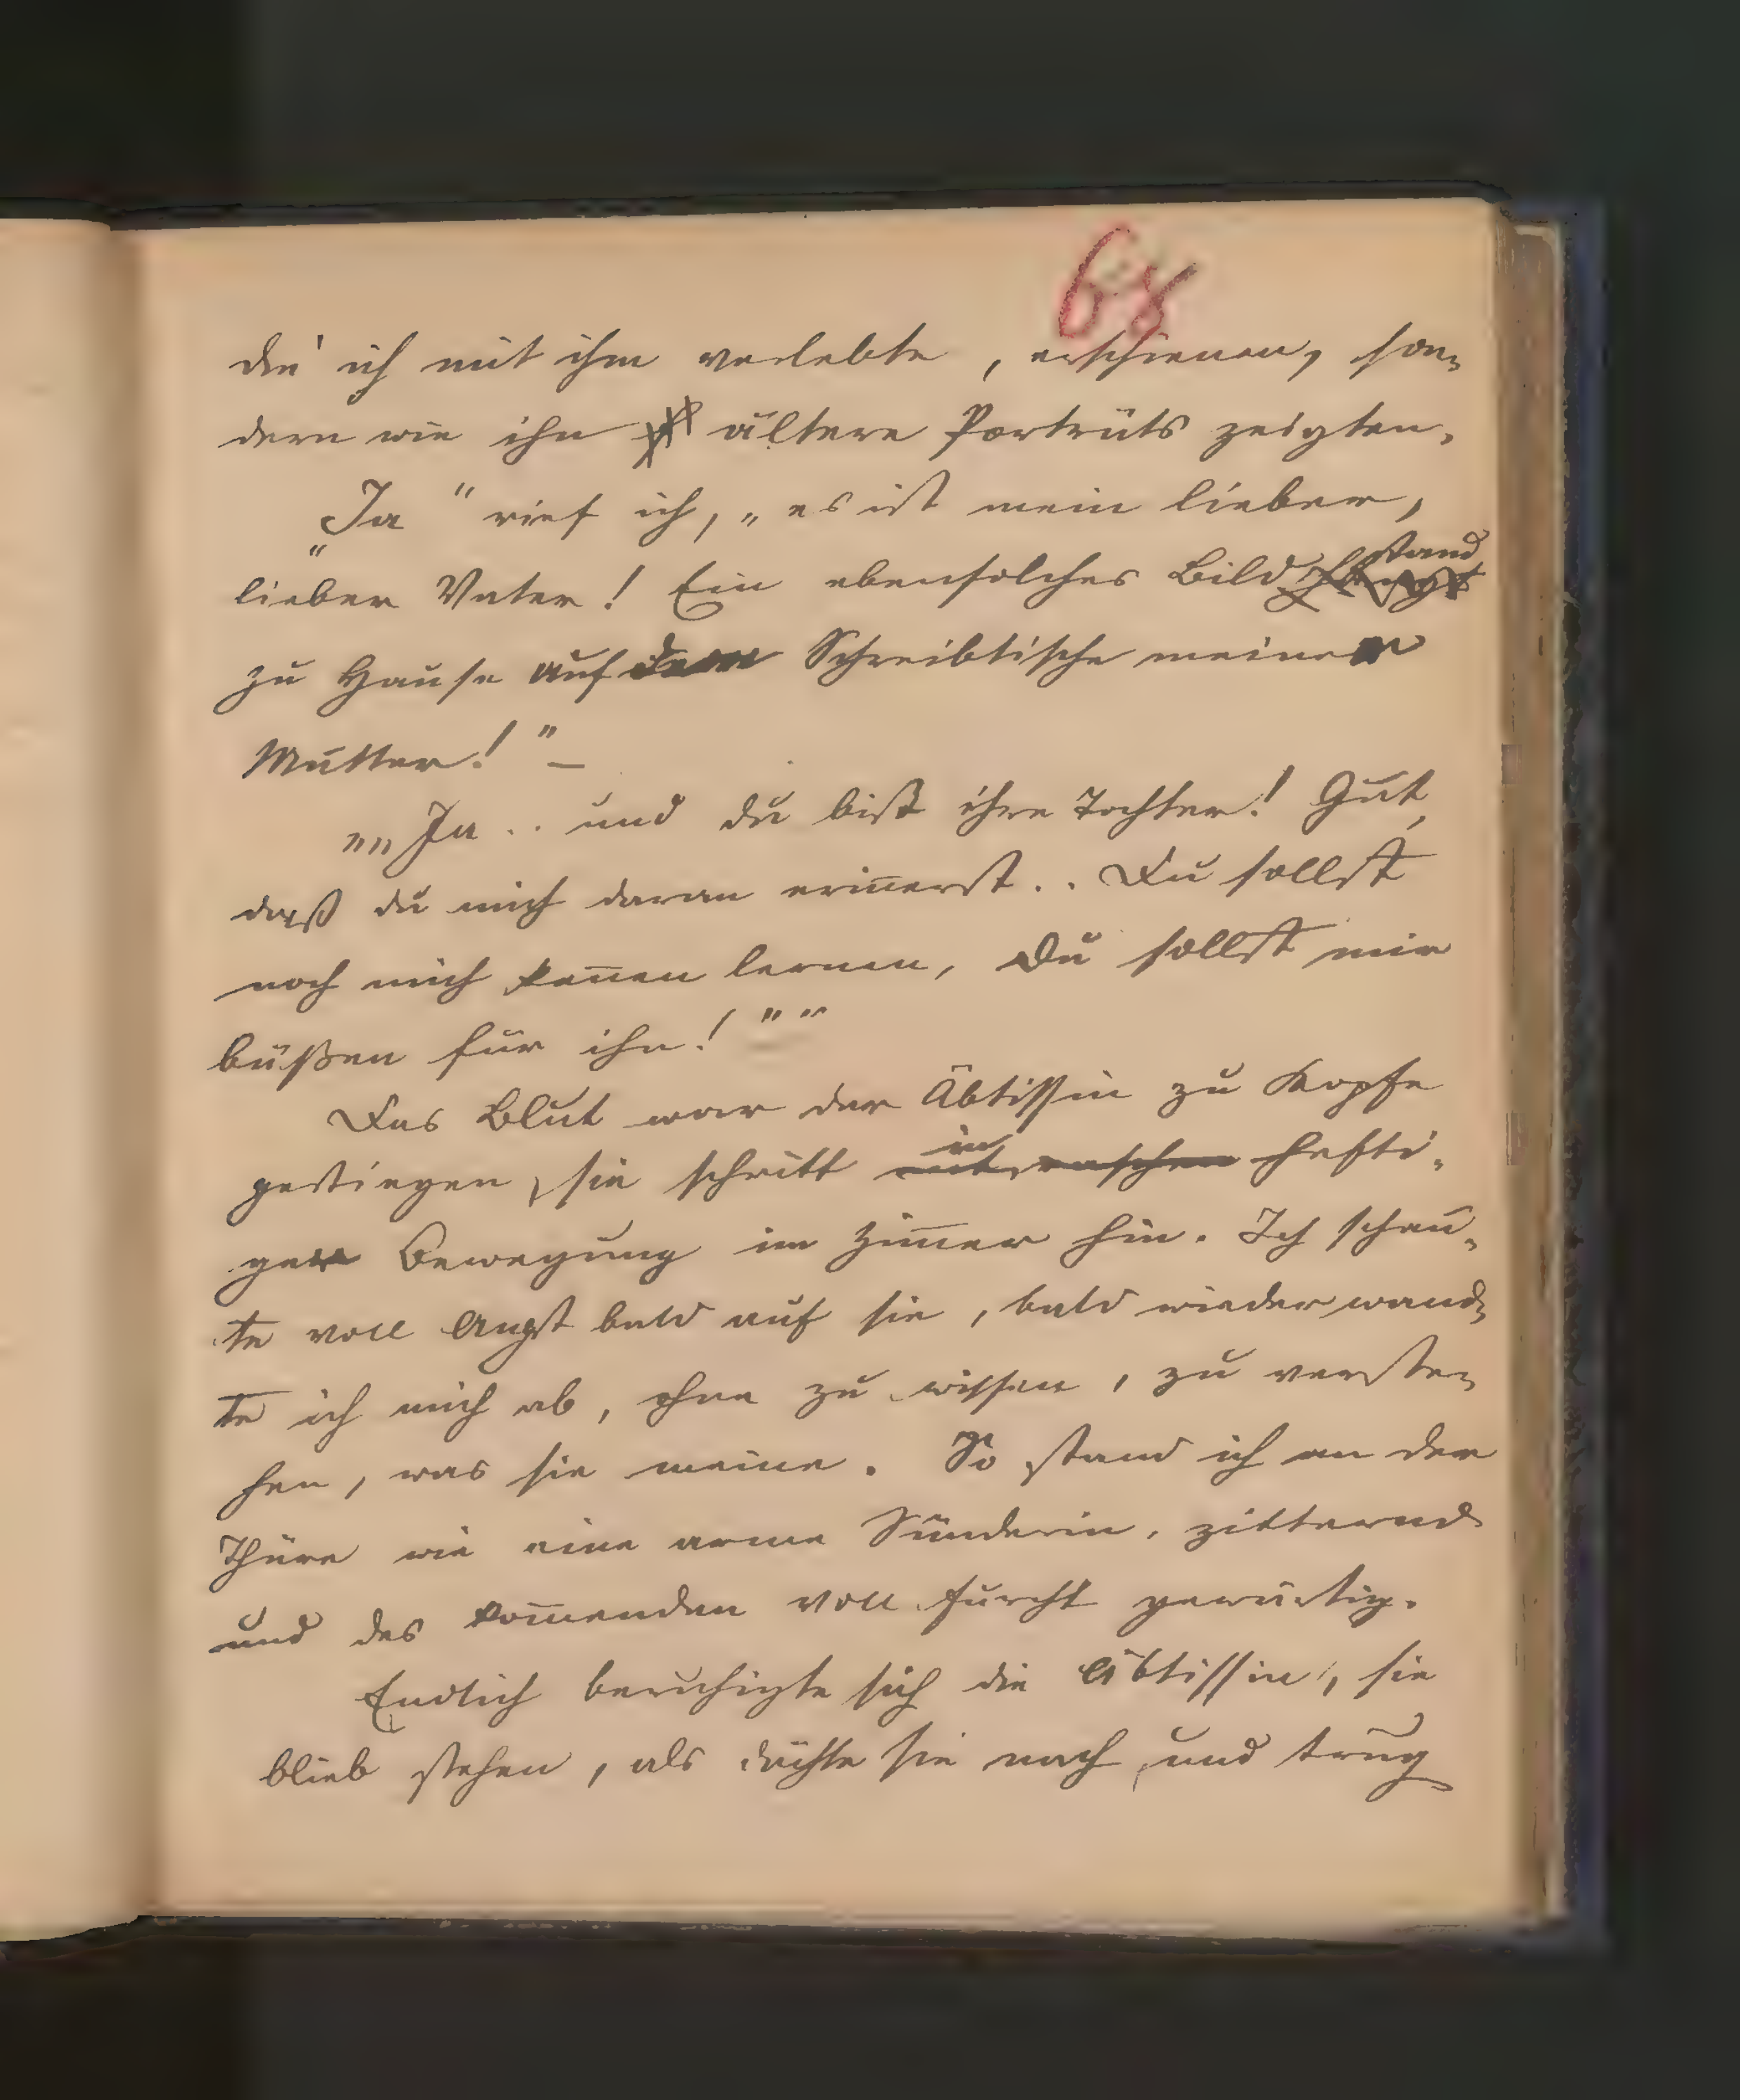 68
die ich mit ihm verlebte, erschienen, son-
dern wie ihn ältere Porträts zeigten.
„Ja“ rief ich, „es ist mein lieber,
lieber Vater! Ein ebensolches Bild stand
zu Hause auf dem Schreibtische meiner
Mutter!“ –
„„Ja .. und du bist ihre Tochter! Gut,
daß du mich daran erin̄erst .. Du sollst
noch mich ken̄en lernen, Du sollst mir
büßen für ihn!““
Das Blut war der Äbtissin zu Kopfe
gestiegen, sie schritt in mit raschen hefti-
ger Bewegung im Zim̄er hin. Ich schau-
te voll Angst bald auf sie, bald wieder wand-
te ich mich ab, ohne zu wissen, zu verste-
hen, was sie meine. So stand ich an der
Thüre wie eine arme Sünderin, zitternd
und des kom̄enden voll Furcht gewärtig.
Endlich beruhigte sich die Äbtissin, sie
blieb stehen, als dächte sie nach und trug